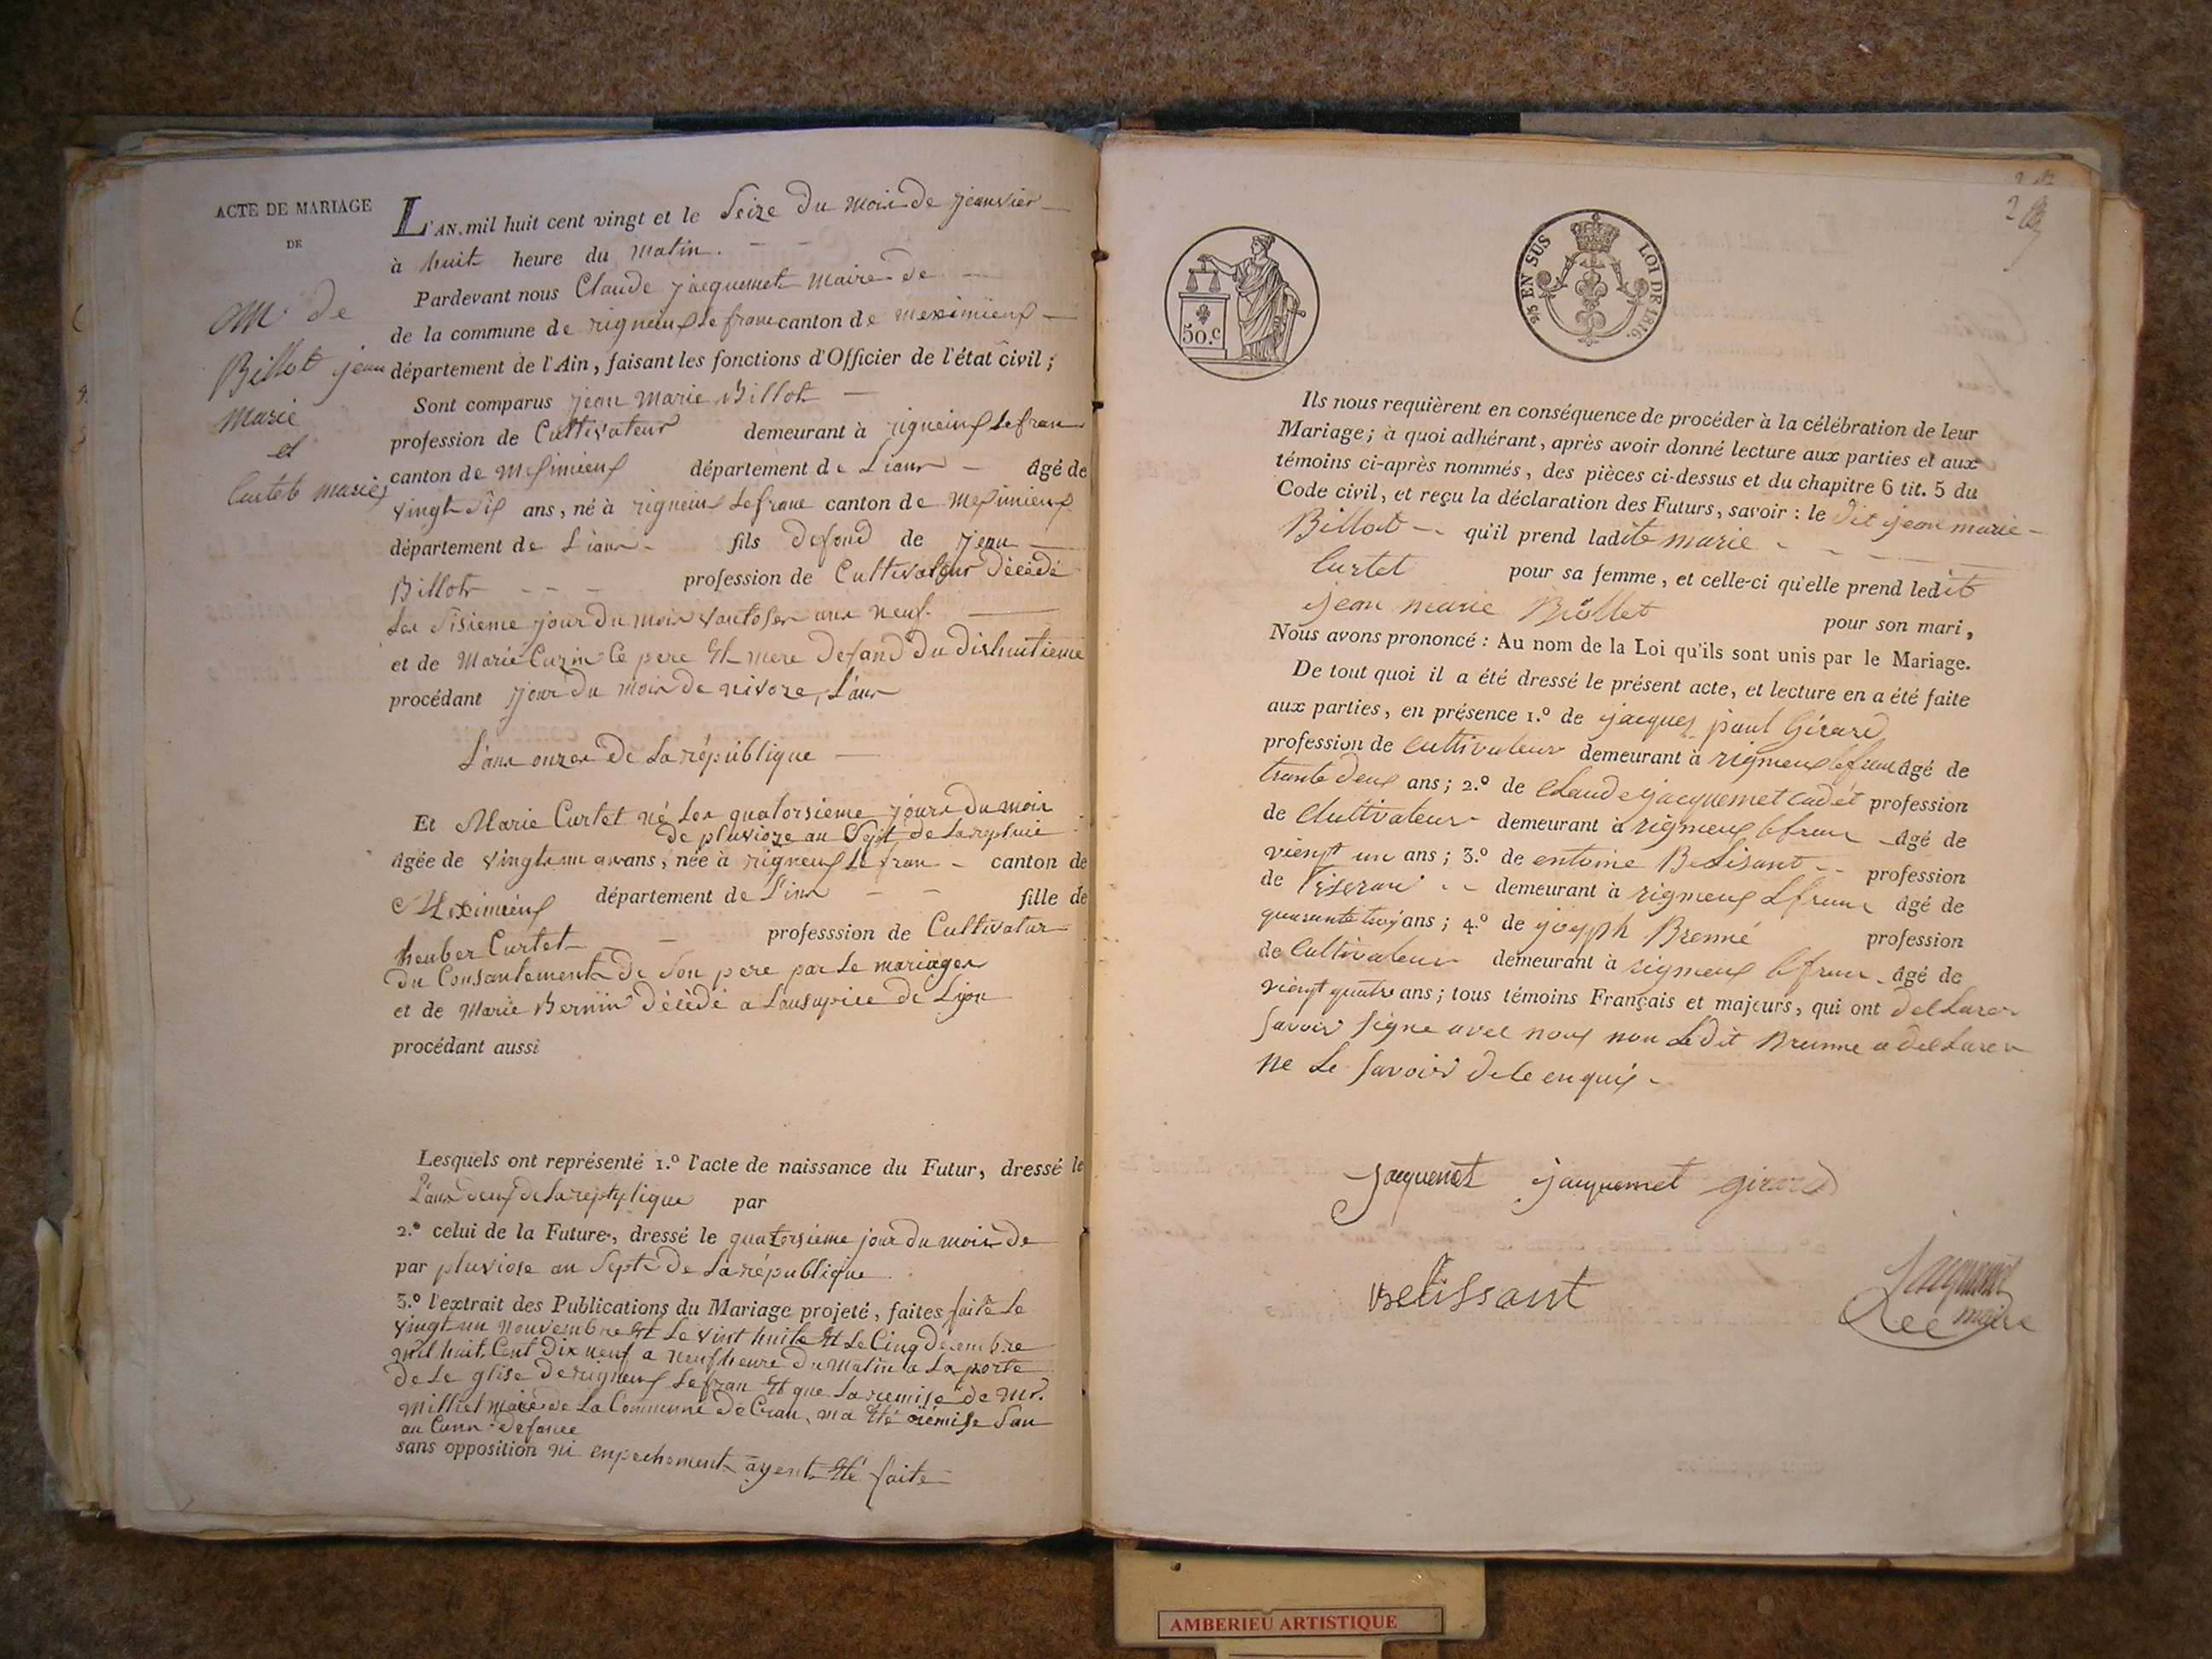 ACTE DE MARIAGE
DE
M. de
Billot jean
marie
et
Curtet marie
L'AN mil huit cent vingt et le Seize Du mois de jeanvier
à huit heure du matin.
Pardevant nous Claude jacquemet maire de
de la commune de rigneux Le franc canton de meximieux
département de l'Ain, faisant les fonctions d'Officier de l'état civil;
Sont comparus jean marie Billot
profession de Cultivateur demeurant à rigneux Lefran
canton de meximieux département de Liann âgé de
vingt six ans, né à rigneux Lefranc canton de meximieux
département de Liann fils defond de jean
Billot profession de Cultivateur Décédé
Les Sisieme jour du mois vantose ans neuf.
et de Marie Curin Ce pere Et mere Defand Du dishuitieme
procédant jour Du mois de nivoze, L'ans
L'ans onzes De La république
Et Marie Curtet né Les quatorsieme jours du mois
de pluvioze an Sept de
âgée de vingt un ans, née à rigneux Le fran canton de
Meximieux département de L'ins fille de
heuber Curtet professsion de Cultivatur
Du Consantement De Son pere par Le mariages
et de Marie Bernin Décédé a L'ausapice de Lyon
procédant aussi
Lesquels ont représenté 1.º l'acte de naissance du Futur, dressé le
L'ans deux de par
2.º celui de la Future, dressé le quatorsieme jour du mois de
par pluviose an Sept De La république
3.º l'extrait des Publications du Mariage projeté, faites faite Le
vingt un nouvembre Et Le vint huite Et Le Cinq Decembre
mil huit Cent Dix neuf a neuf heure Du matin a La porte
de Le glise De rigneux Lefran Et que La remise de Mr.
milliet maire de La Commune De Cran, ma Eté rémise San
au Cunn Defance
sans opposition ni enpechement ayent Eté faite
2
50.C
25 EN SUS LOI DE 1816.
Ils nous requièrent en conséquence de procéder à la célébration de leur
Mariage; à quoi adhérant, après avoir donné lecture aux parties et aux
témoins ci-après nommés, des pièces ci-dessus et du chapitre 6 tit. 5 du
Code civil, et reçu la déclaration des Futurs, savoir : le dit jean marie
Billot qu'il prend ladite marie
Curtet pour sa femme, et celle-ci qu'elle prend ledit
jean marie Biollet pour son mari,
Nous avons prononcé : Au nom de la Loi qu'ils sont unis par le Mariage.
De tout quoi il a été dressé le présent acte, et lecture en a été faite
aux parties, en présence 1.º de jacques paul Girard
profession de cultivateur demeurant à rigneux lefranc âgé de
trante deux ans; 2.º de Claude jacquemet cadet profession
de Cultivateur demeurant à rigneux lefranc âgé de
vienjt un ans; 3.º de entoine Belisant profession
de Tiserant demeurant à rigneux Lefranc âgé de
quarante troy ans; 4.º de joseph Brenné profession
de Cultivateur demeurant à rigneux lefranc âgé de
vienjt quatre ans; tous témoins Français et majeurs, qui ont dellarer
Savoir signe avec nous non Le Dit Brenne a dellarer
ne Le Savoir de ce enquis
Jacquemet jacquemet girard
Belissant
Jacquemet
maire
AMBERIEU ARTISTIQUE